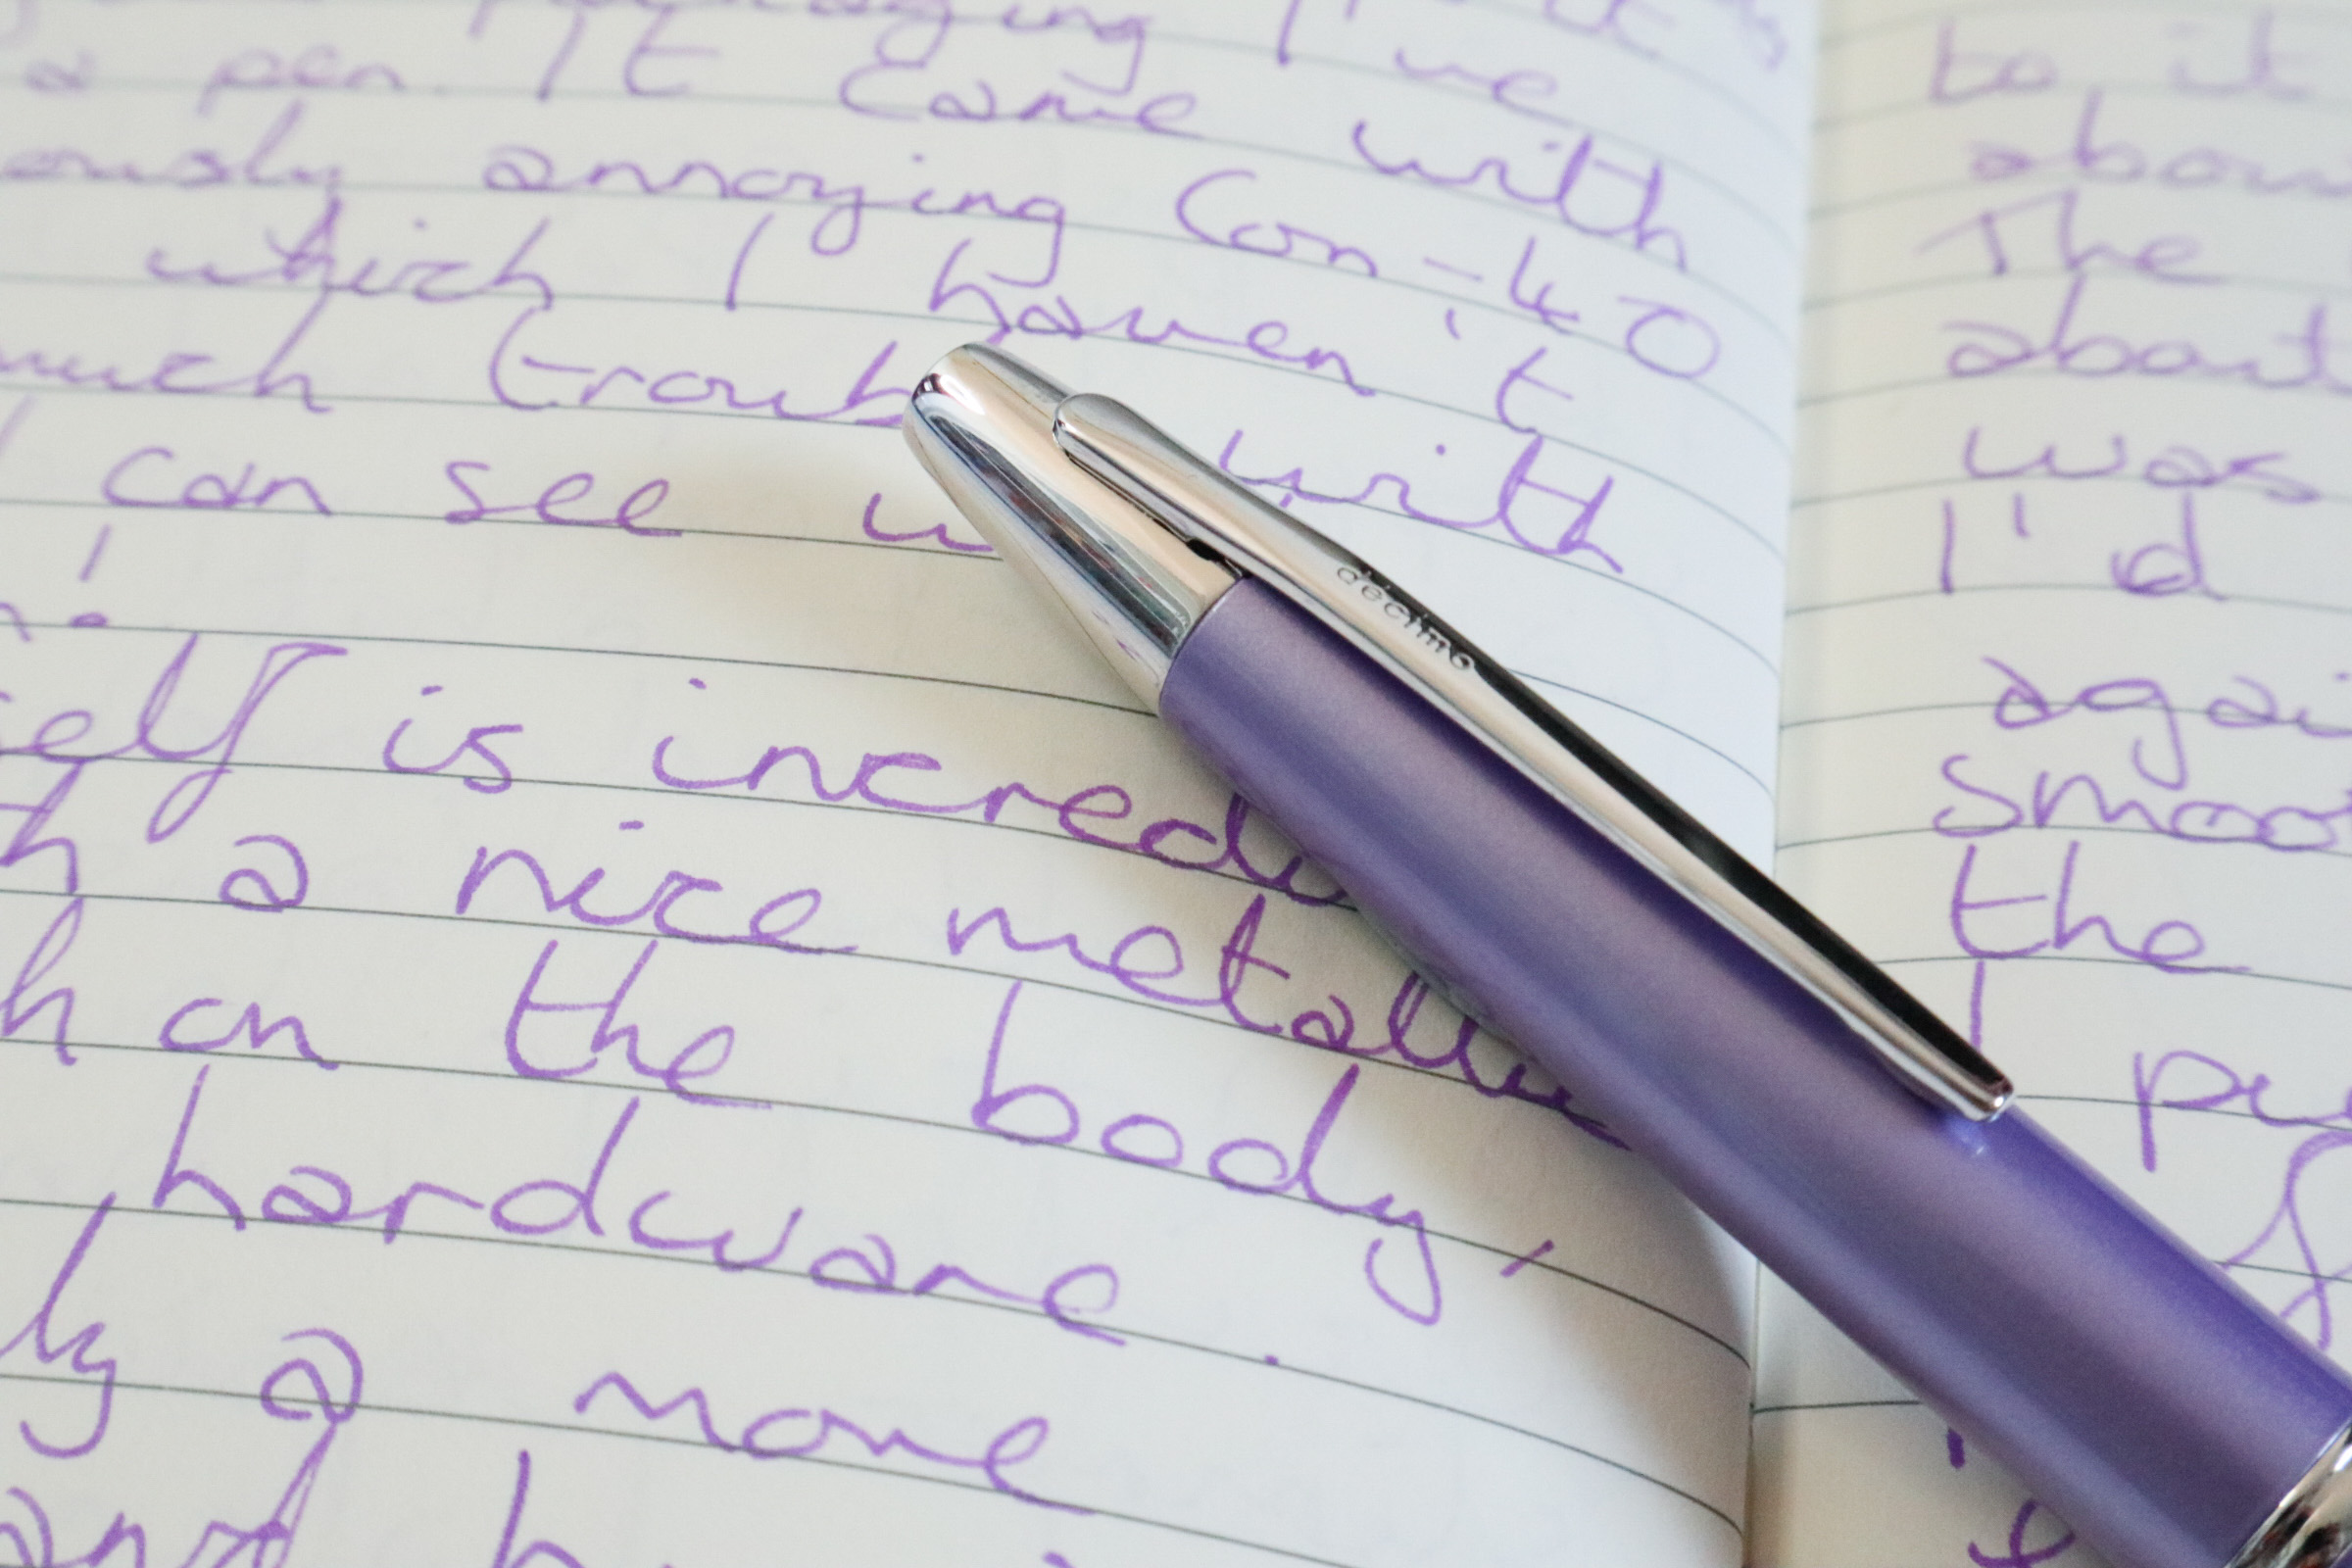 a pen. It came with
ously annoying Con-40
which I haven't
much troub with
I can see w
self is incredi
h a nice metallic
h on the body,
hardware.
ly a more
and
decimo
to it
abou
The
about
was
I'd
agai
smoo
the
I pu